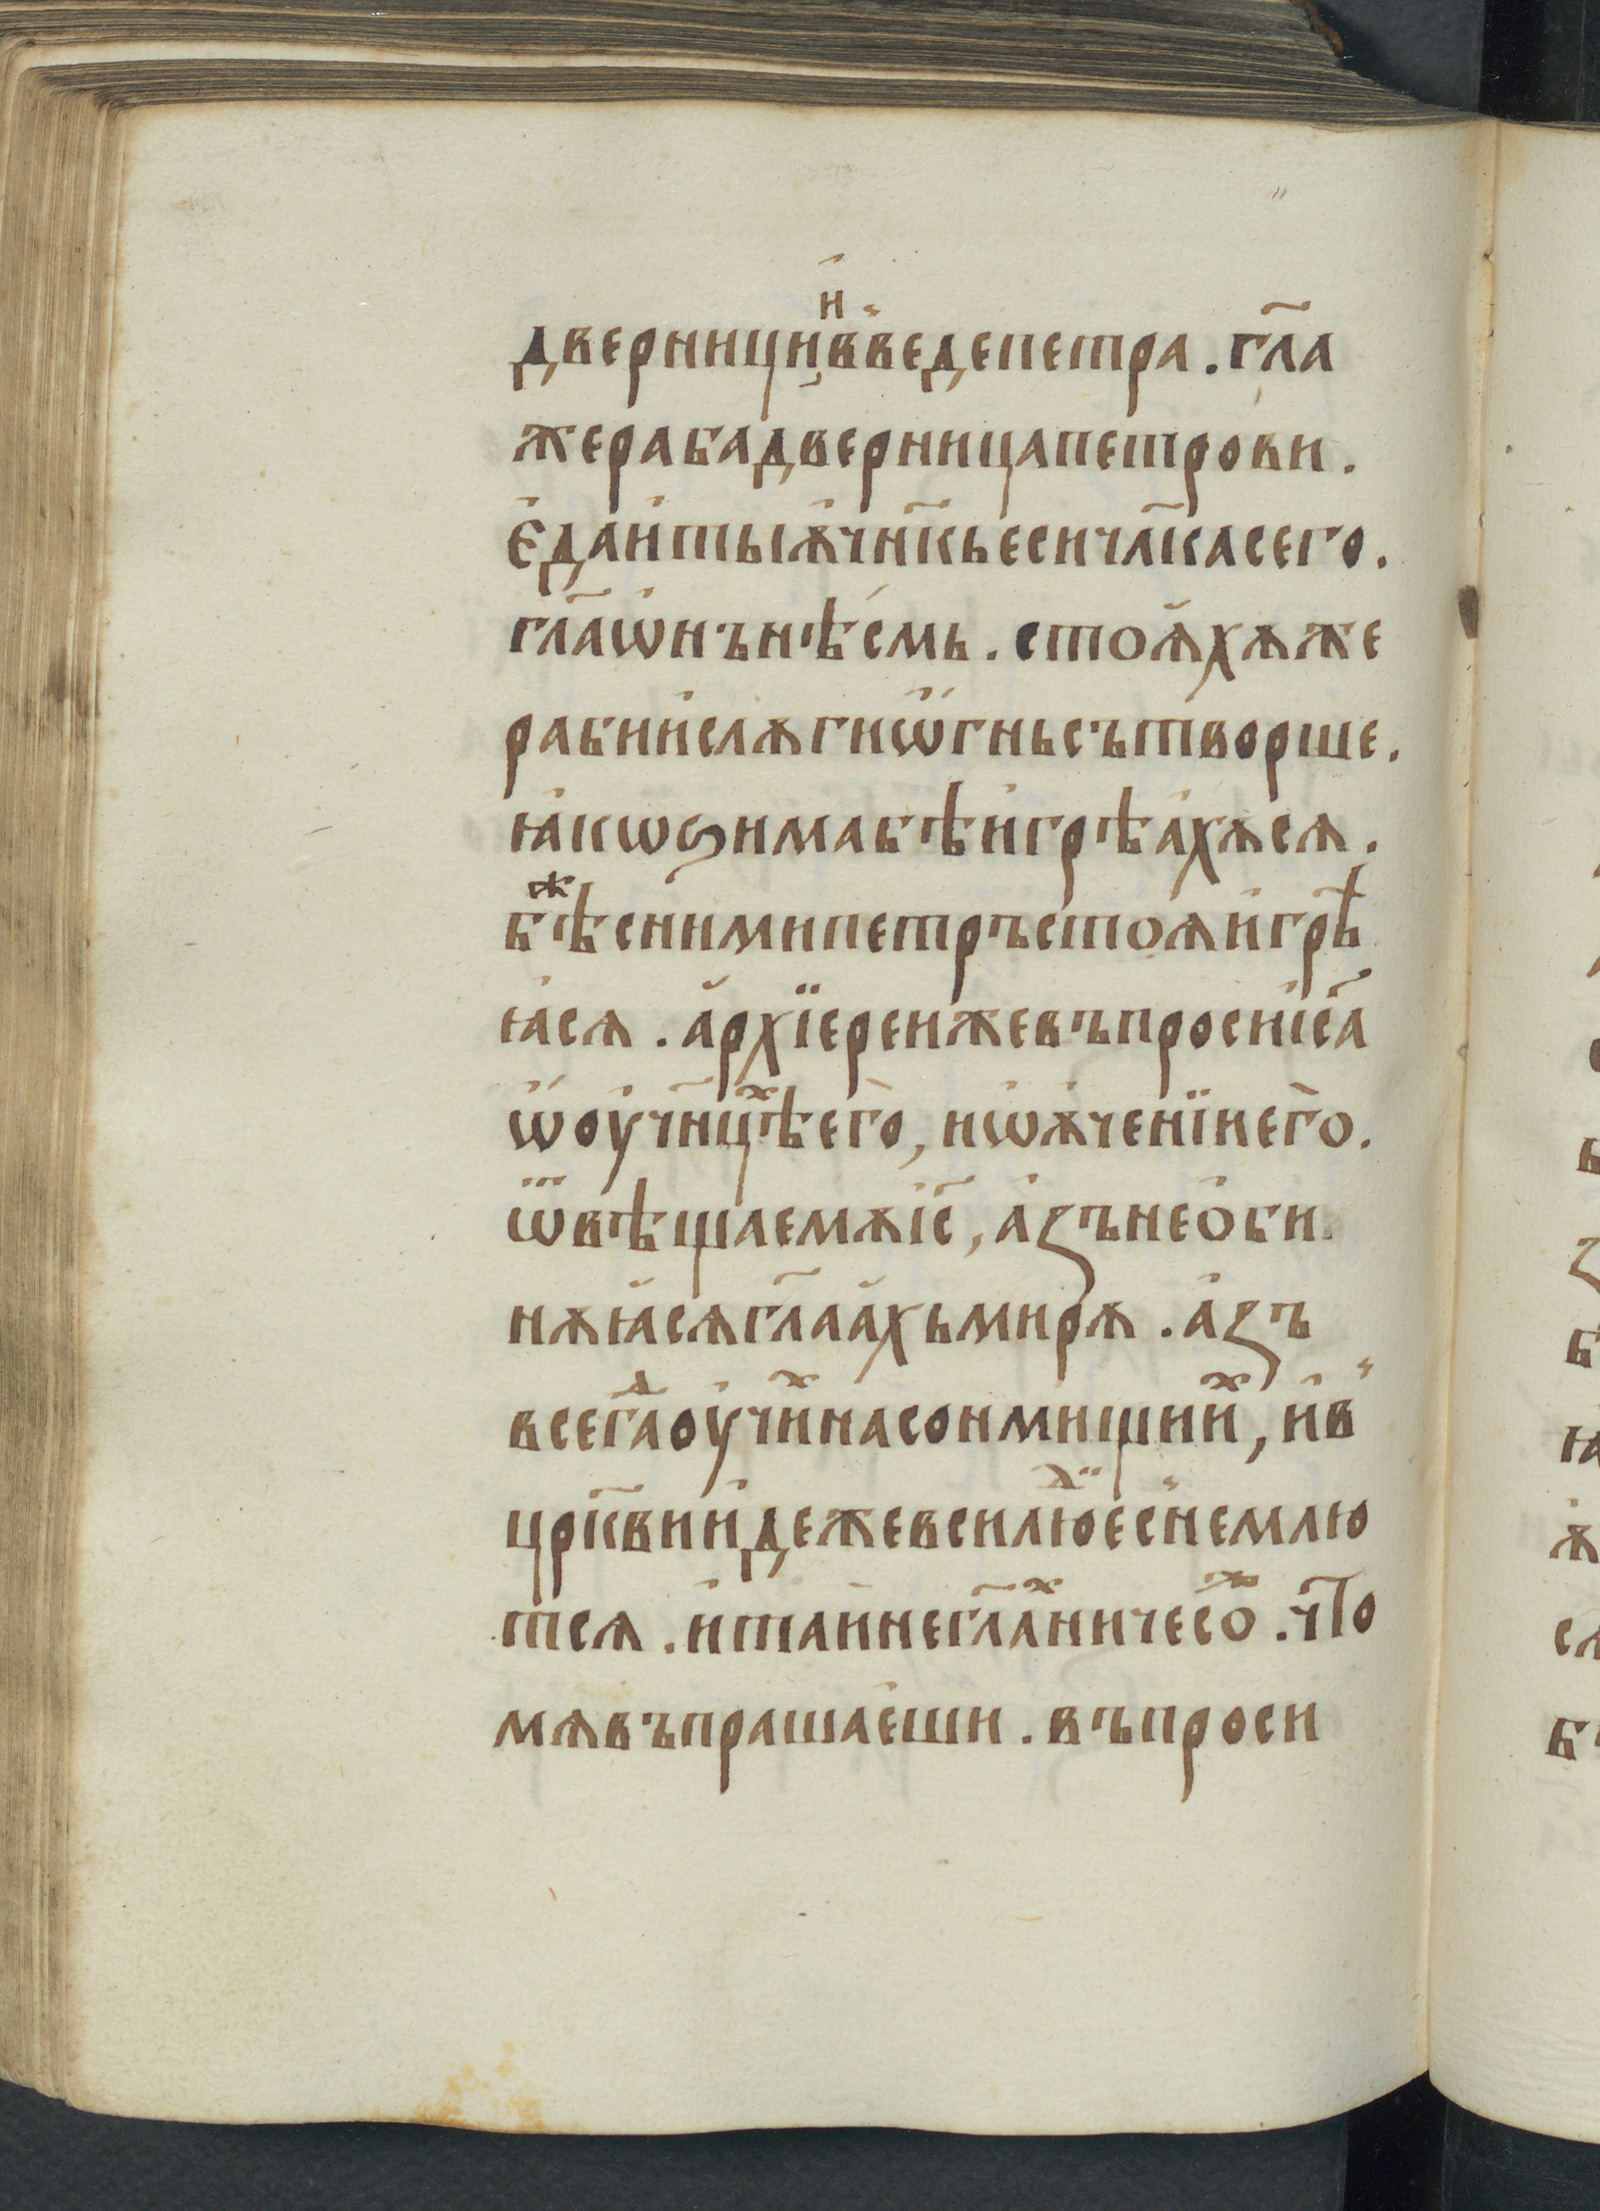 дверници и҆ в̾веде петра . гл҃а
же раба дверница петрови .
Є҆да и҆ ты ѫ҆чн҃кь еси чл҃ка сего .
гл҃а ѡ҆нъ нѣ́смь . стоѧ̆хѫ же
раби и҆ слѫги ѡ҆́гнь сътворше .
ꙗ҆кѡ ѕима бѣ и҆ грѣа҆хѫсѧ .
бѣⷤ с ними петръ стоѧ и҆ грѣ
ꙗ҆сѧ . а҆рхїереи же въпроси і҆с҃а
ѡ҆́ оу҆чн҃цѣⷯ его̀, и ѡ ѫ҆ченїи его̀ .
ѿвѣща емѫ і҆с҃, а҆зъ не о҆би
нѫꙗ҆сѧ гл҃аа҆хь мирѫ . а҆зъ
всегⷣа оу҆чиⷯ на сонмищиⷯи, и҆ в̾
црк҃ви и҆деже вси июⷣ҇е҆ сне́млю
тсѧ . и҆ таи не гл҃аⷯ ничесоⷤ . чт҃о
мѧ въпрашае҆ши . въпроси